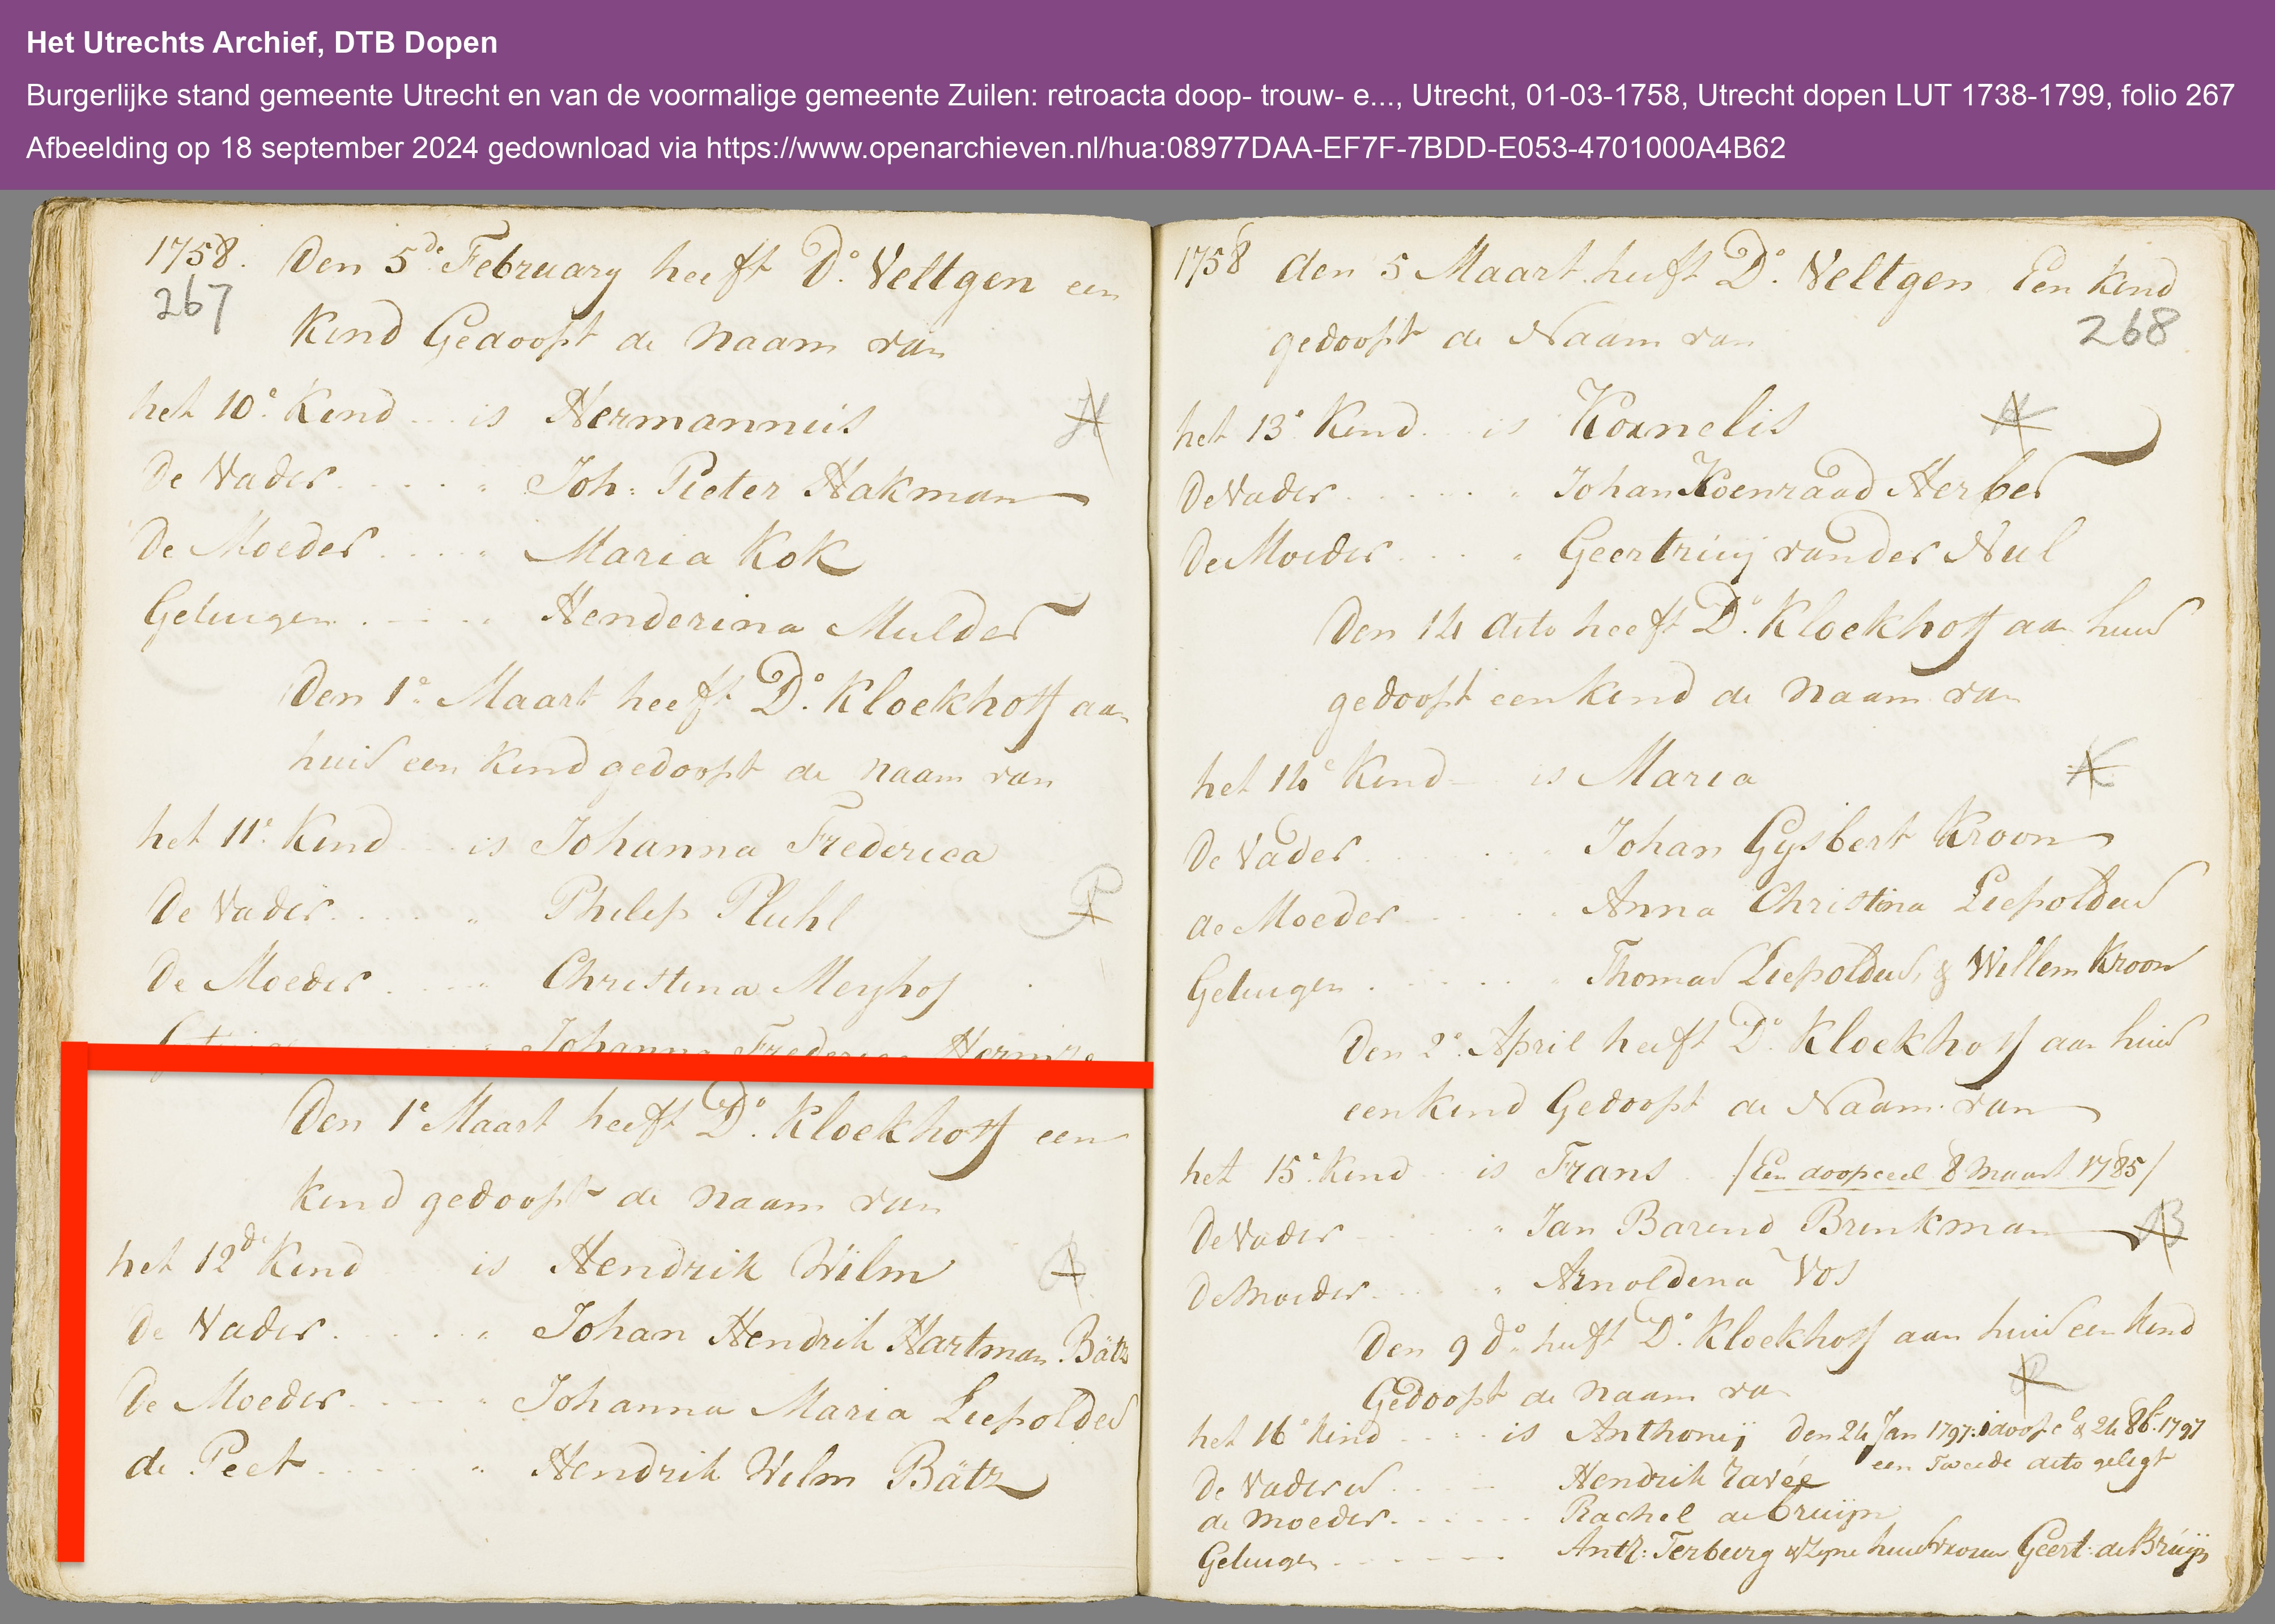 Het Utrechts Archief, DTB Dopen
Burgerlijke stand gemeente Utrecht en van de voormalige gemeente Zuilen: retroacta doop- trouw- e..., Utrecht, 01-03-1758, Utrecht dopen LUT 1738-1799, folio 267
Afbeelding op 18 september 2024 gedownload via https://www.openarchieven.nl/hua:08977DAA-EF7F-7BDD-E053-4701000A4B62
1758. Den 5de February heeft Do. Veltgen een
267
Kind Gedoopt de Naam van
het 10e Kind is Hermannus
H
De Vader Joh: Pieter Hakman
De Moeder Maria Kok
Getuigen Henderina Mulder
Den 1e Maart heeft Do. Kloekhoff aan
huis een Kind gedoopt de Naam van
het 11e Kind is Johanna Frederica
De Vader Philip Pluhl
P
De Moeder Christina Meyhof
Johanna Frederica
Den 1e Maart heeft Do. Kloekhoff een
kind gedoopt de naam van
het 12de Kind is Hendrik Wilm
B
De Vader Johan Hendrik Hartman Bätz
De Moeder Johanna Maria Liepoldes
de Peet Hendrik Wilm Bätz
1758 den 5 Maart heeft Do. Veltgen Een kind
268
gedoopt de Naam van
het 13e Kind is Kornelis
H
De Vader Johan Koenraad Herber
De Moeder Geertruij vander Nul
Den 14 dito heeft Do. Kloekhoff aan huis
gedoopt een kind de Naam van
het 14e Kind is Maria
K
De Vader Johan Gysbert Kroon
de Moeder Anna Christina Liepoldus
Getuigen Thomas Liepoldus, & Willem Kroon
Den 2e April heeft Do. Kloekhoff aan huis
een kind Gedoopt de Naam van
het 15e Kind is Frans /Een doopceel 8 Maart 1785/
De Vader Jan Barend Brinkman
B
De Moeder Arnoldina Vos
Den 9 do. heeft Do. Kloekhoff aan huis een Kind
Gedoopt de Naam van
het 16e Kind is Anthonij Den 24 Jan 1797 24 1797
een Tweede dito geligt
De Vader Hendrik Ravée
de Moeder Rachel de Bruijn
Getuigen Anth: Terburg & Zyne huisvrouw Geert: de Bruijn